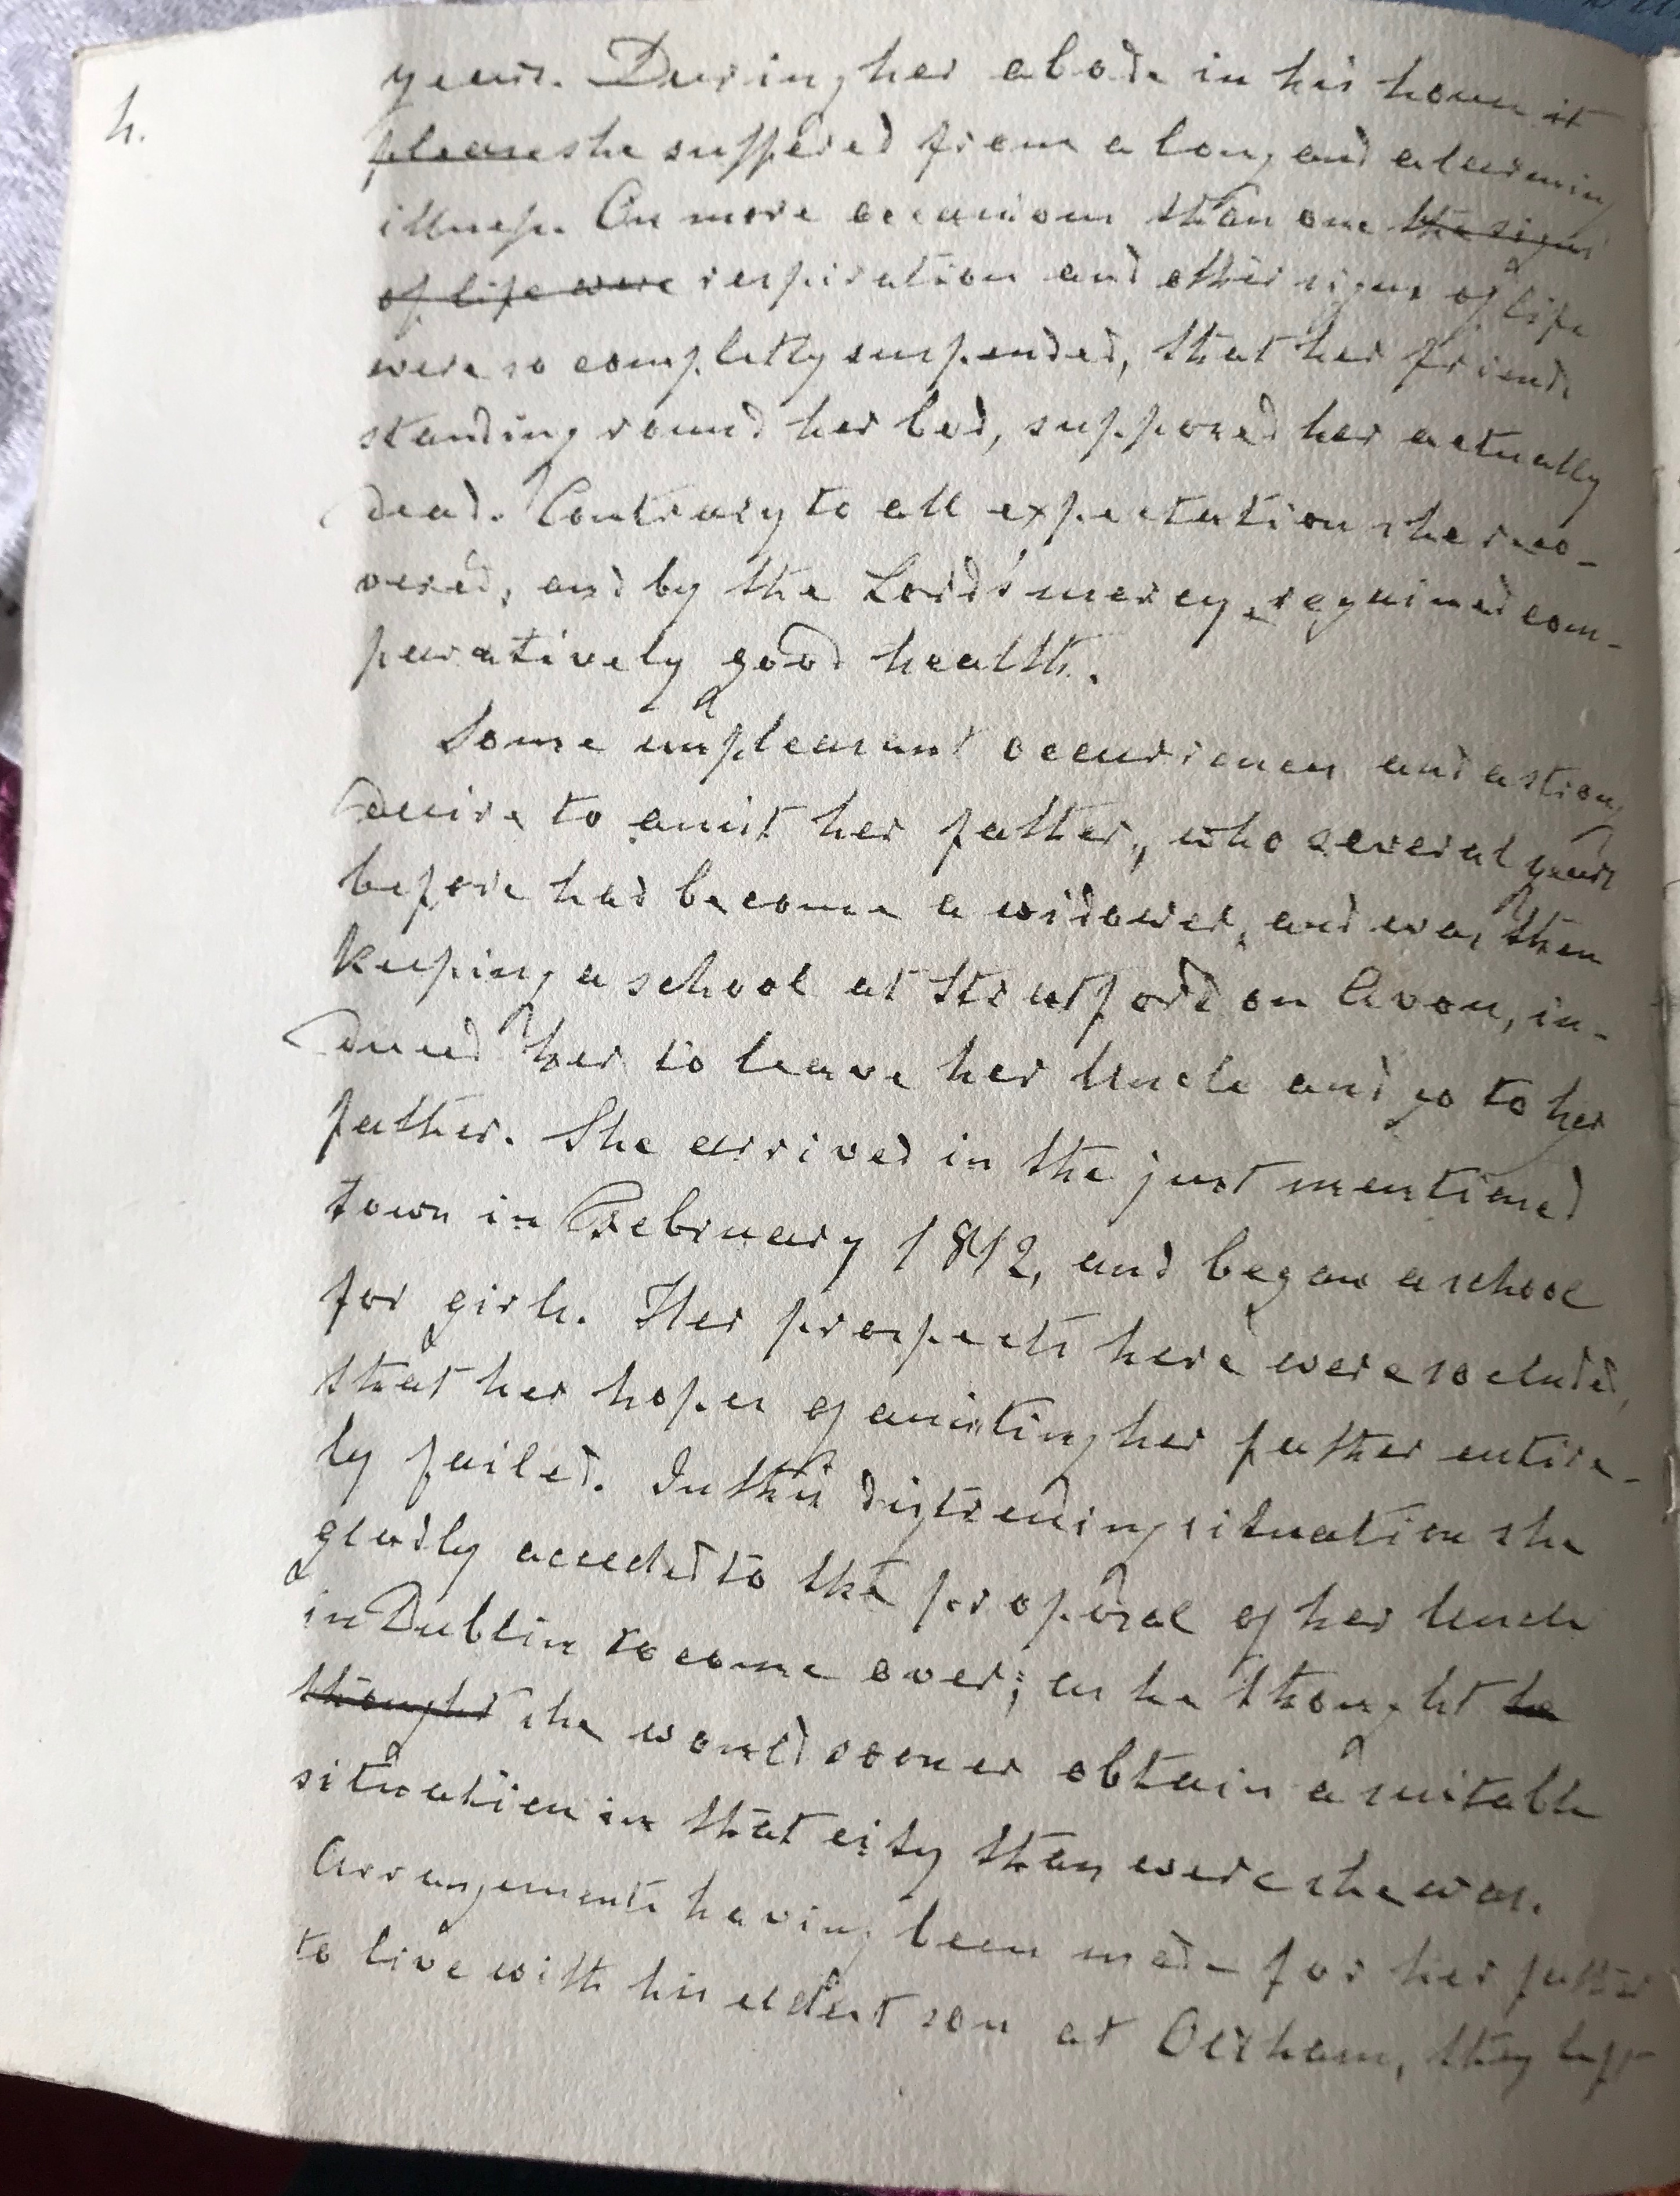 4.
years. During her abode in his house it
please she suffered from a long and alarming
illness. On more occasions than one the signs
of life were respiration and other signs of life
were so completly suspended, that her friends
standing round her bed, supposed her actually
dead. Contrary to all expectation she reco-
vered, and by the Lord's mercy, regained com-
paratively good health.
Some unpleasant occurrences and a strong
desire to assist her father, who several years
before had become a widower, and was then
keeping a school at Stratford on Avon, in-
duced her to leave her Uncle and go to her
father. She arrived in the just mentioned
town in February 1842, and began a school
for girls. Her prospects here were so clouded,
that her hopes of assisting her father entire-
ly failed. In this distressing situation she
gladly acceded to the proposal of her Uncle
in Dublin to come over; as he thought he
thought she would sooner obtain a suitable
situation in that city than were she was.
Arrangements having been made for her father
to live with his eldest son at Oldham, they left